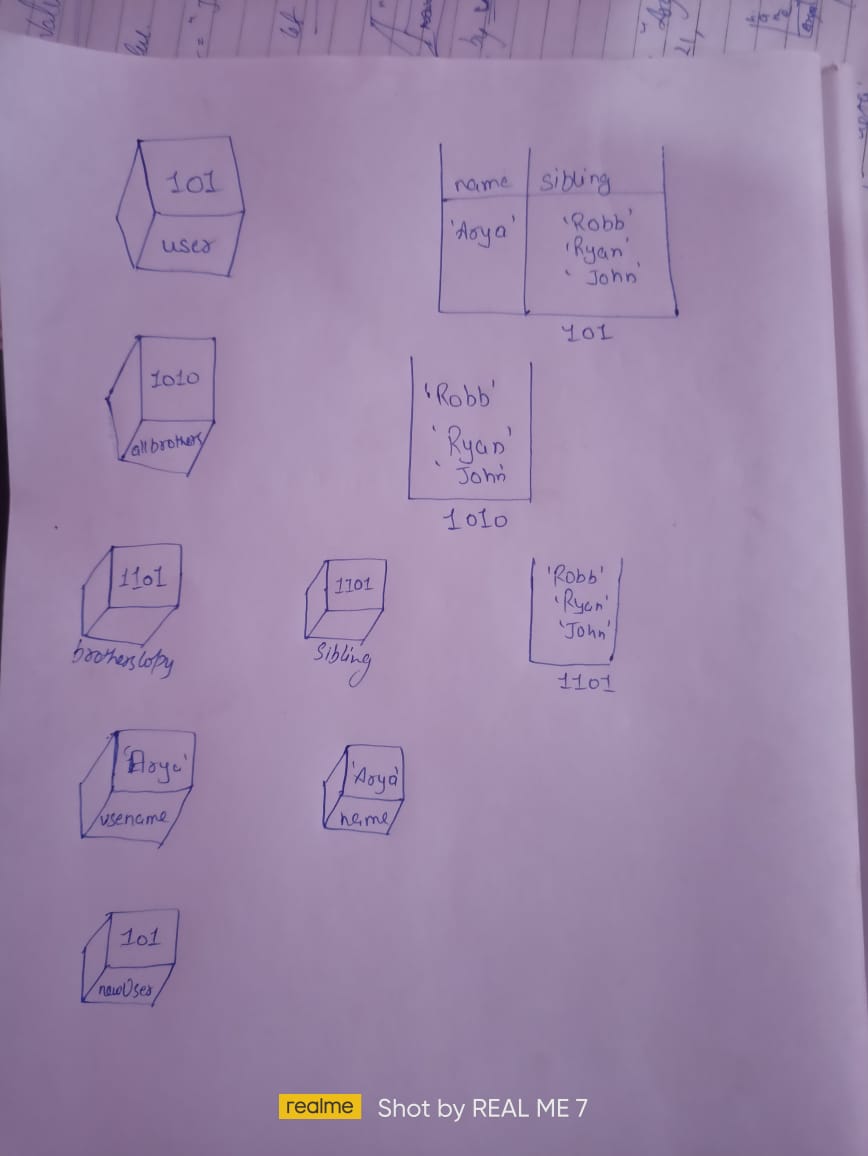 101
user
name sibling
'Arya' 'Robb'
'Ryan'
' John'
101
1010
allbrothers
'Robb'
'Ryan'
' John'
1010
1101
brotherscopy
1101
Sibling
'Robb'
'Ryan'
'John'
1101
'Arya'
usename
'Arya'
name
101
newUser
realme Shot by REAL ME 7